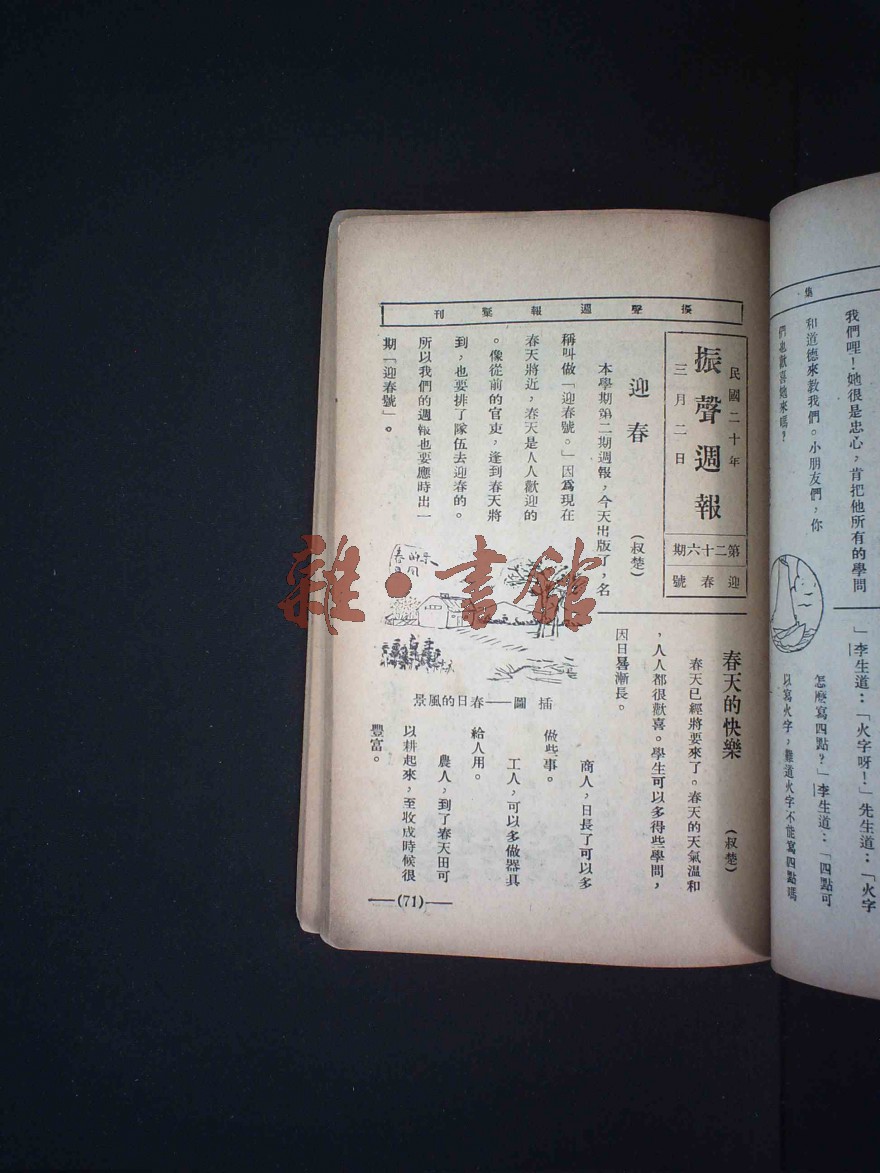 我們哩！她很是忠心，肯把他所有的學問
和道德來教我們。小朋友們，你
們也歡喜她來嗎？
」李生道：「火字呀！」先生道：「火字
怎麼寫四點？」李生道：「四點可
以寫火字，難道火字不能寫四點嗎
振聲週報彙刊
民國二十年
三月二日
振聲週報
第二十六期
迎春號
迎春
（叔楚）
本學期第二期週報，今天出版了，名
稱叫做「迎春號。」因爲現在
春天將近，春天是人人歡迎的
。像從前的官吏，逢到春天將
到，也要排了隊伍去迎春的。
所以我們的週報也要應時出一
期「迎春號」。
插圖——春日的風景
春天的快樂
（叔楚）
春天已經將要來了。春天的天氣溫和
，人人都很歡喜。學生可以多得些學問，
因日晷漸長。
商人，日長了可以多
做些事。
工人，可以多做器具
給人用。
農人，到了春天田可
以耕起來，至收成時候很
豐富。
(71)
雜·書館